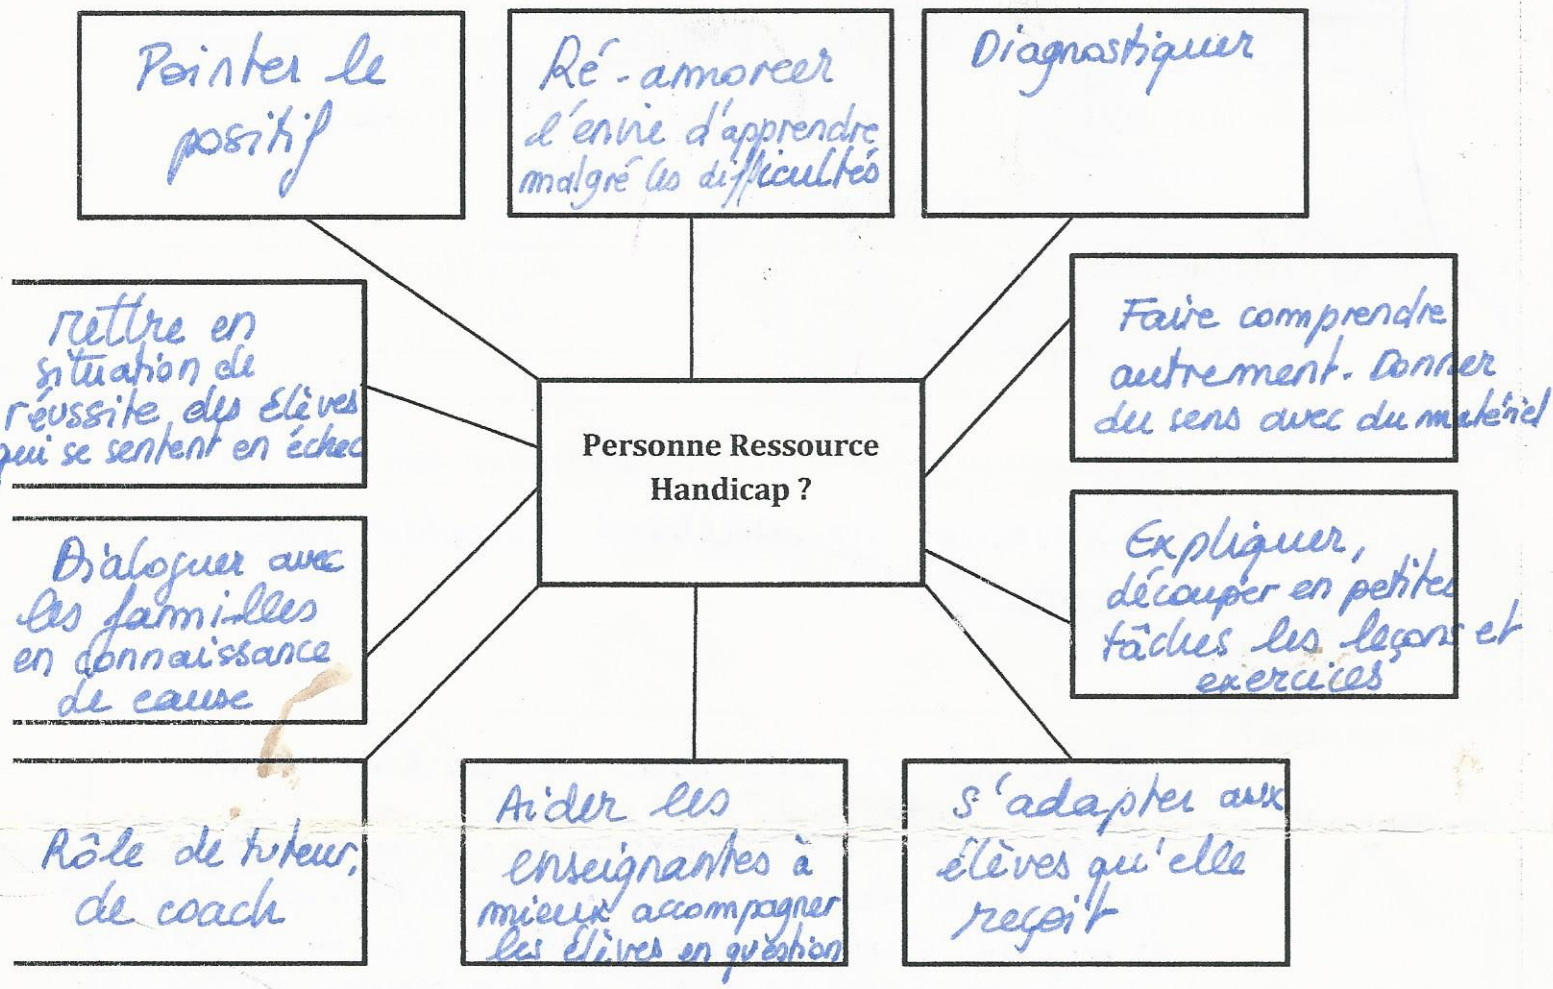 Pointer le
positif
Ré-amorcer
l'envie d'apprendre
malgré les difficultés
Diagnostiquer
Mettre en
situation de
réussite des élèves
qui se sentent en échec
Faire comprendre
autrement. Donner
du sens avec du matériel
Personne Ressource
Handicap ?
Dialoguer avec
les familles
en connaissance
de cause
Expliquer,
découper en petites
tâches les leçons et
exercices
Rôle de tuteur,
de coach
Aider les
enseignantes à
mieux accompagner
les élèves en question
s'adapter aux
élèves qu'elle
reçoit